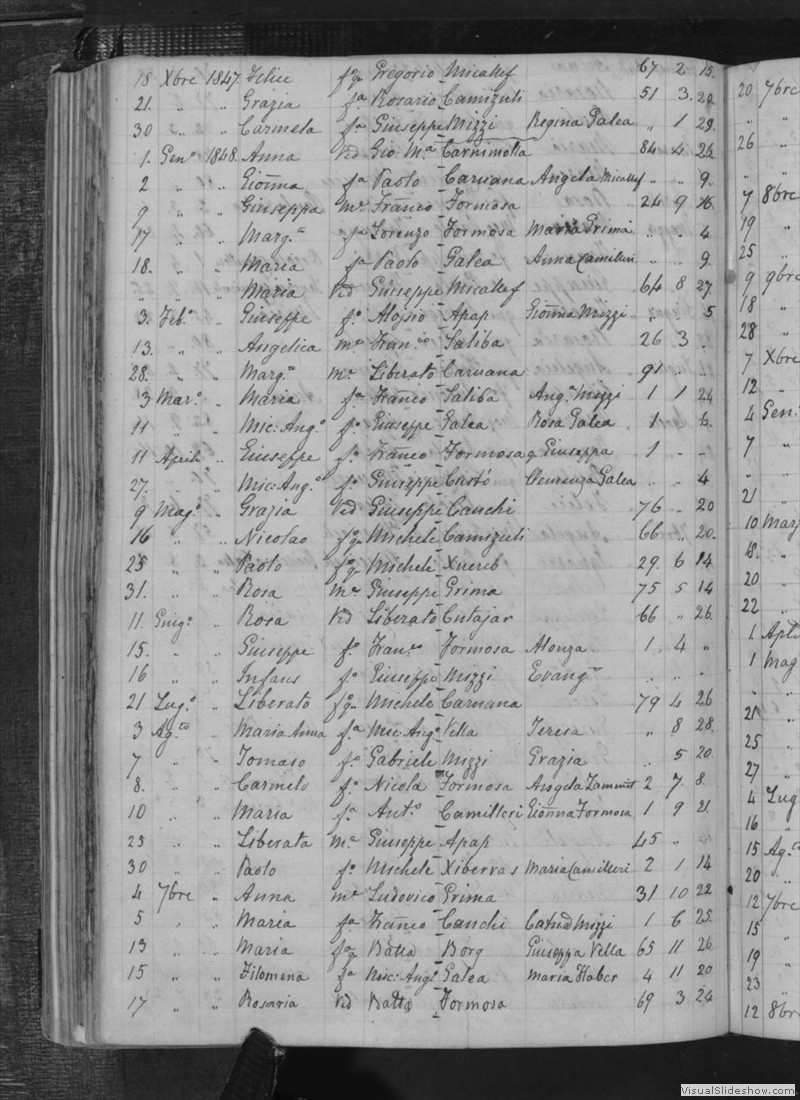 18 Xbre 1847 Felice fo q Gregorio Micallef 67 2 15
21. " " Grazia fa Rosario Camizuli 51 3. 29
30 " " Carmela fa Giuseppe Mizzi Regina Galea " 1 29.
1. Geno. 1848. Anna Vid Gio. Ma Carnimolla 84 4 26.
2 " " Gionna fa Paolo Caruana Angela Micallef " " 9.
9 " " Giuseppa me Franco Formosa 24 9 16
17 " " Marg.a fa Lorenzo Formosa Maria Grima " " 4
18. " " Maria fa Paolo Galea Anna Camilleri " " 9
" " " Maria Vid Giuseppe Micallef 64 8 27
3. Feb.o " Giuseppe fo Aloisio Apap Gionna Mizzi " " 5
13. " " Angelica me Fran.co Saliba 26 3 .
28. " " Marg.a me Liberato Caruana 91 " "
3 Mar.o " Maria fa Franco Saliba Ang.a Mizzi 1 1 24
11 " " Mic: Ang.o fo Giuseppe Galea Rosa Galea 1 " 6.
11 April " Giuseppe fo Franco Formosa q Giuseppa 1 - -
27. " " Mic: Ang.o fo Giuseppe Cristó Galea " " 4
9 Mag.o " Grazia Vid Giuseppe Cauchi 76 " 20
16 " " Nicolao fo q Michele Camizuli 66 " 20.
25 " " Paolo fo q Michele Xuereb 29. 6 14
31. " " Rosa me Giuseppe Grima 75 5 14
11. Giug.o " Rosa Vid Liberato Cutajar 66 " 26.
15. " " Giuseppe fo Fran.co Formosa Alonza 1. 4 "
16 " " Infans fo Giuseppe Mizzi Evang.a " " "
21 Lug.o " Liberato fo q Michele Caruana 79 4 26
3 Ag.to " Maria Anna fa Mic: Ang.o Vella Teresa " 8 28.
7 " " Tomaso fo Gabriele Mizzi Grazia " 5 20
8. " " Carmelo fo Nicola Formosa Angela Zammit 2 7. 8.
10 " " Maria fa Ant.o Camilleri Gionna Formosa 1 9 21.
23 " " Liberata me Giuseppe Apap 45 " "
30 " " Paolo fo Michele Xiberras Maria Camilleri 2 1 14
4 7bre " Anna me Ludovico Grima 31 10 22
5 " " Maria fa Franco Cauchi Catnd Mizzi 1 6 25.
13 " " Maria fa q Batta Borg Giuseppa Vella 65 11 26
15 " " Filomena fa Mic: Ang.o Galea Maria Haber 4 11 20
17 " " Rosaria Vid Batta Formosa 69 3 24
20 7bre
" "
26 "
" "
7 8bre
19 "
25 "
9 9bre
18 "
28 "
7 Xbre
12 "
4 Gen.
7 "
" "
21 "
10 Marz
18. "
20 "
22 "
1 Apl
1 Mag
" "
21 "
25 "
27 "
4 Lug
16 "
15 Ag.
20 "
12 7bre
15 "
19 "
23 "
12 8bre
VisualSlideshow.com